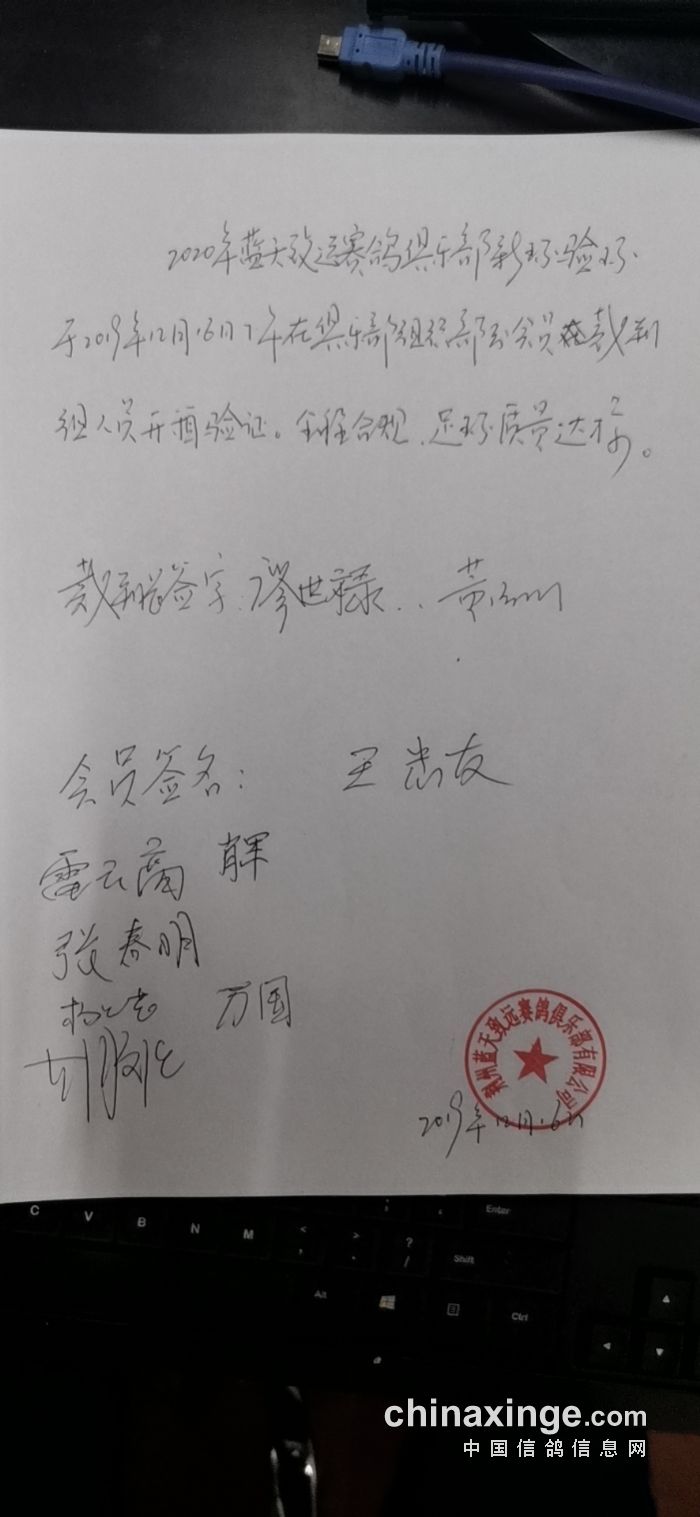 2020年蓝天致远赛鸽俱乐部新环验环
于2019年12月16日下午在俱乐部组织部分会员在裁判
组人员开箱验证。全程合规,足环质量达标。
裁判签字:廖世禄
会员签名: 王忠友
雷云 肖军
张春明
万国
荆州蓝天致远赛鸽俱乐部有限公司
2019年12月16日
C V B N M < , > . ? / Enter
Shift
Alt Ctrl
chinaxinge.com
中国信鸽信息网